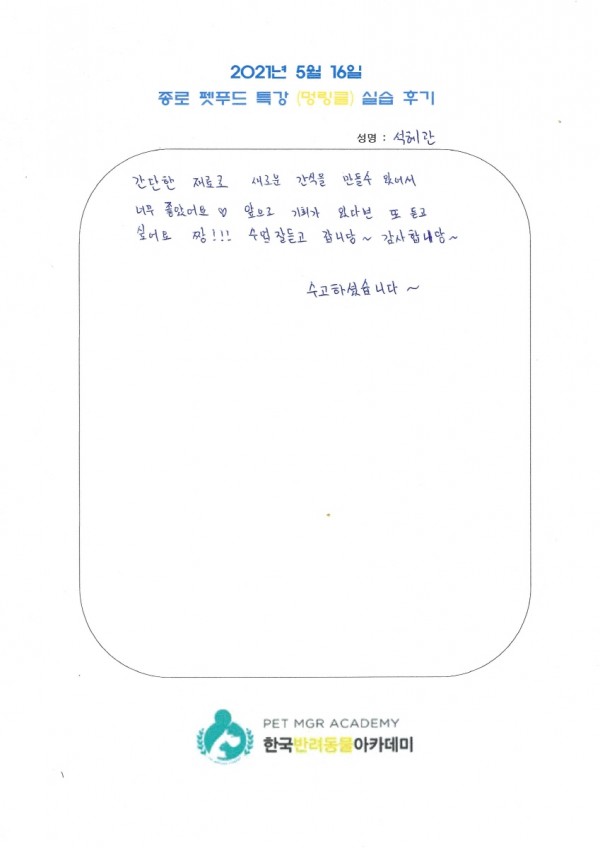 2021년 5월 16일
종로 펫푸드 특강 (멍링클) 실습 후기
성명 : 석혜란
간단한 재료로 새로운 간식을 만들수 있어서
너무 좋았어요 ♡ 앞으로 기회가 있다면 또 듣고
싶어요 짱!!! 수업잘듣고 갑니당~ 감사합니당~
수고하셨습니다~
PET MGR ACADEMY
한국반려동물아카데미